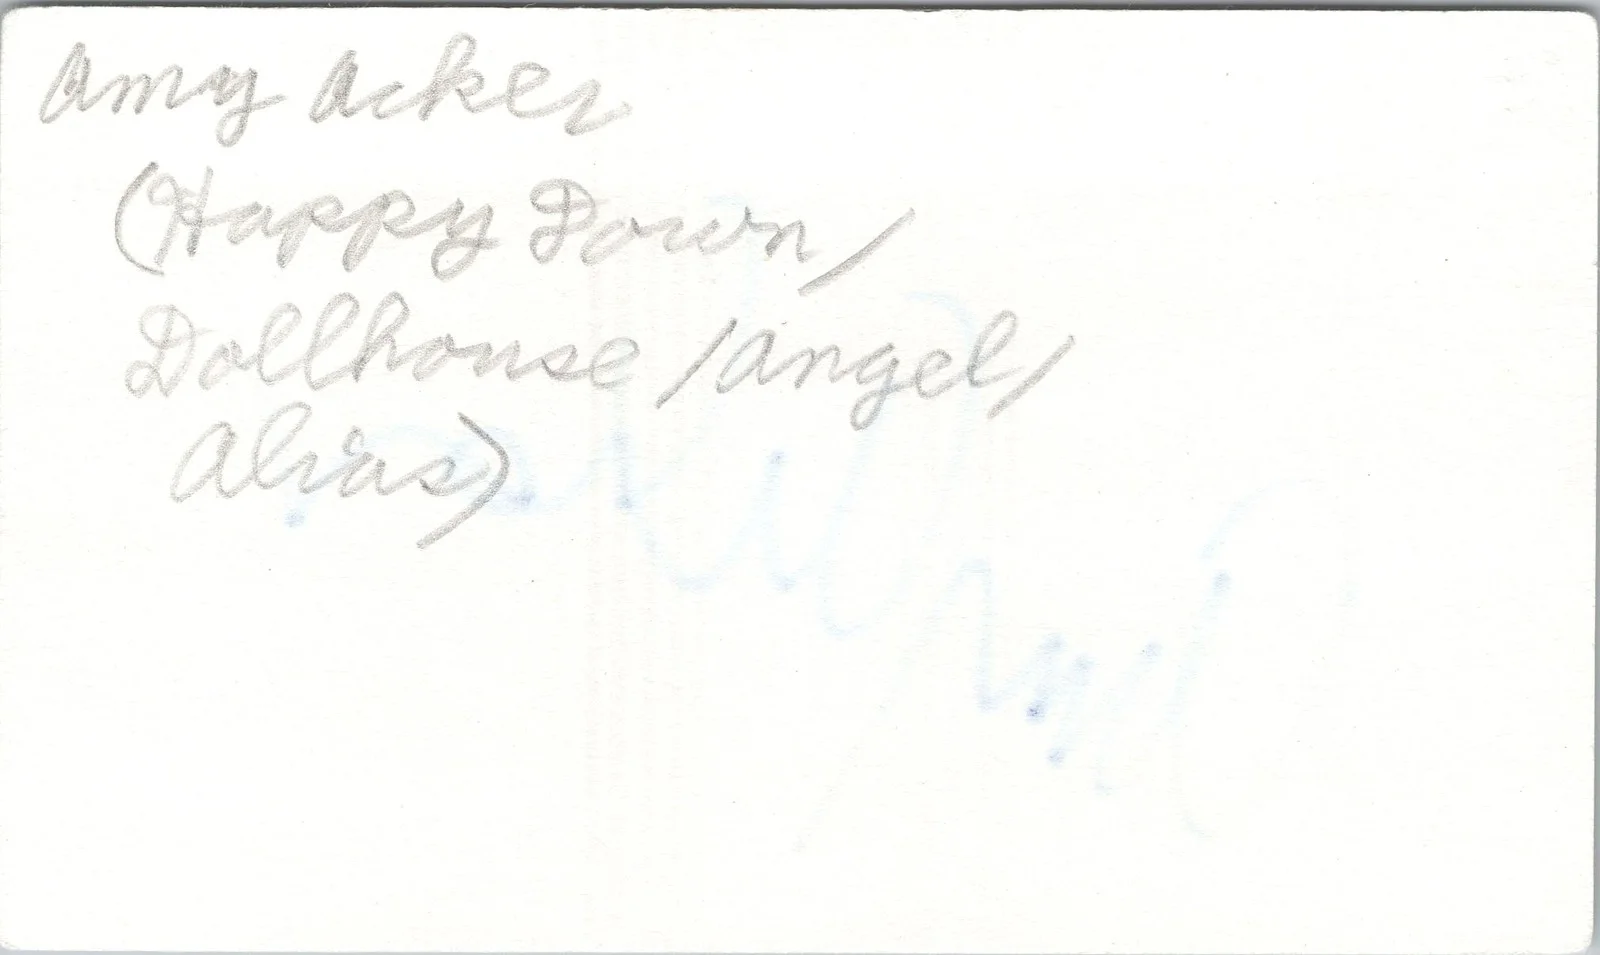 Amy Acker
(Happy Down/
Dollhouse/Angel/
Alias)